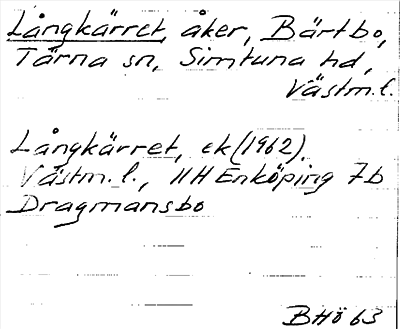 Långkärret, åker, Bärtbo,
Tärna sn, Simtuna hd,
Västm.l.
Långkärret, ek (1962).
Västm.l., 11H Enköping 7b
Dragmansbo
BHö 63